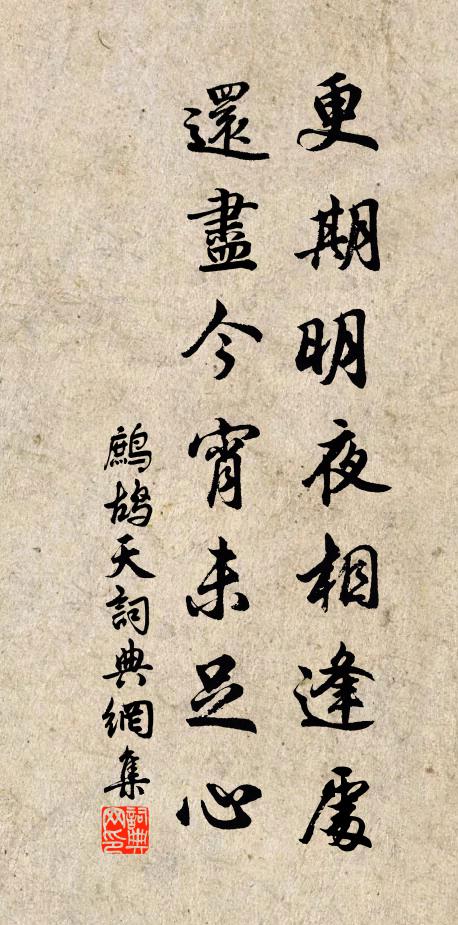 更期明夜相逢處
還盡今宵未足心
鷓鴣天詞典網集
詞典网印